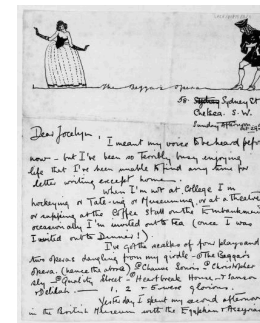 The Beggar's Opera
58. Sydney St
Chelsea. S.W.
Sunday afternoon
Dear Jocelyn,
I meant my voice to be heard
now - but I've been so terribly busy enjoying
life that I've been unable to find any time for
letter writing except home.
When I'm not at College I'm
hockeying or Tate-ing or Museuming, or at a Theatre
or napping at the Coffee Stall on the Embankment
occasionally I'm invited out to tea (once I was
Invited out to Dinner!)
I've got the scalps of four plays and
two operas dangling from my girdle - The Beggar's
Opera. (hence the above) Chauve Souris - Christopher
Sly - Quality Street - Heartbreak House - Samson
& Delilah.
Yesterday I spent my second afternoon
in the British Museum with the Egyptians & Assyrians